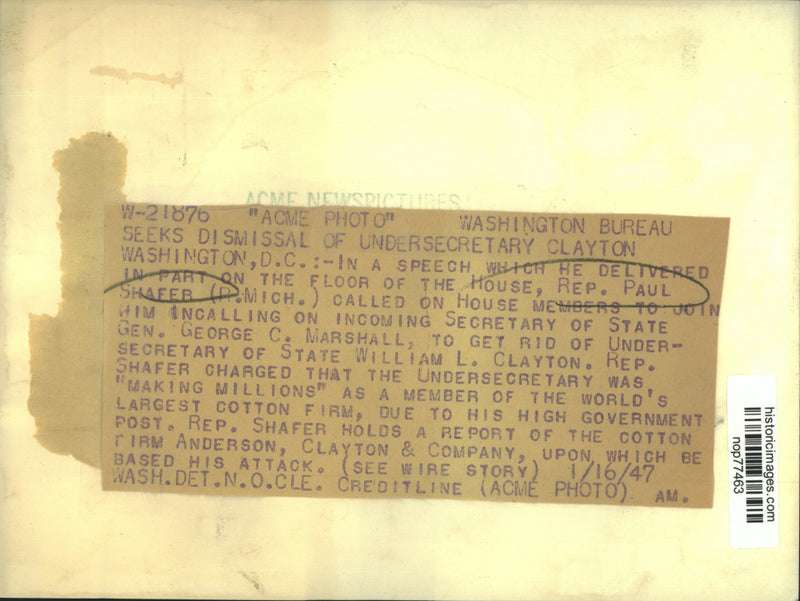 ACME NEWSPICTURES
W-21876 "ACME PHOTO" WASHINGTON BUREAU
SEEKS DISMISSAL OF UNDERSECRETARY CLAYTON
WASHINGTON,D.C.:-IN A SPEECH WHICH HE DELIVERED
IN PART ON THE FLOOR OF THE HOUSE, REP. PAUL
SHAFER (R.MICH.) CALLED ON HOUSE MEMBERS TO JOIN
HIM INCALLING ON INCOMING SECRETARY OF STATE
GEN. GEORGE C. MARSHALL, TO GET RID OF UNDER-
SECRETARY OF STATE WILLIAM L. CLAYTON. REP.
SHAFER CHARGED THAT THE UNDERSECRETARY WAS
"MAKING MILLIONS" AS A MEMBER OF THE WORLD'S
LARGEST COTTON FIRM, DUE TO HIS HIGH GOVERNMENT
POST. REP. SHAFER HOLDS A REPORT OF THE COTTON
FIRM ANDERSON, CLAYTON & COMPANY, UPON WHICH BE
BASED HIS ATTACK. (SEE WIRE STORY) 1/16/47
WASH.DET.N.O.CLE. CREDITLINE (ACME PHOTO) AM.
historicimages.com
nop77463